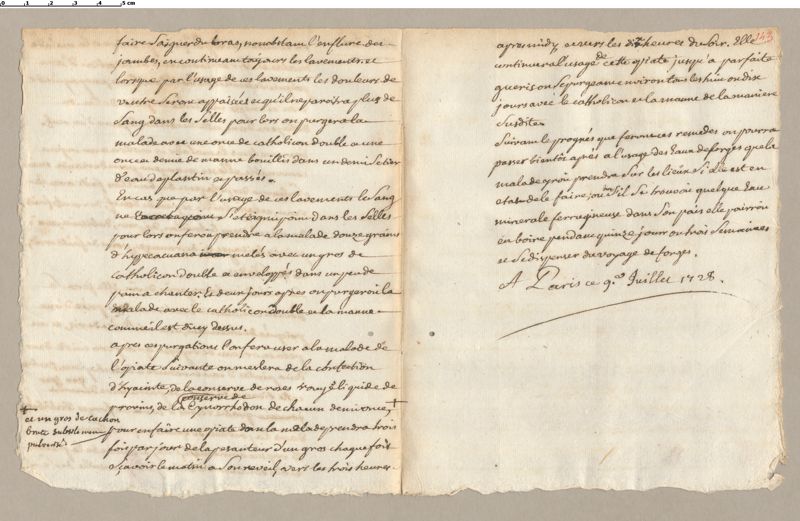 faire saigner du bras, nonobstant l'enflure des
jambes, en continuant toujours les lavements, et
lorsque par l'usage de ces lavements les douleurs de
ventre seront appaisées et qu'il ne paroitra plus de
sang dans les selles pour lors on purgera la
malade avec une once de catholicon double et une
once et demie de manne bouillis dans un demi setier
d'eau de plantin et passés.
En cas que par l'usage de ces lavements le sang
ne s'eteignit point dans les selles
pour lors on fera prendre a la malade douze grains
d'hypecacuana meslés avec un gros de
catholicon double et enveloppés dans un peu de
pain a chanter. Et deux jours apres on purgeroit la
malade avec le catholicon double et la manne
comme il est dit cy dessus.
apres ces purgations l'on fera user a la malade de
l'opiate suivante on meslera de la confection
d'hyacinte, de la conserve de roses rouges liquide de
conserve de
provins, de la Cynorrhodon de chacun demi once, +
+
et un gros de cachou
brut subtilement
pulverisé
pour en faire une opiate dont la malade prendra trois
fois par jour de la pesanteur d'un gros chaque fois
sçavoir le matin a son reveil, vers les trois heures
143
apres midy et vers les dix heures du soir. Elle
continuera l'usage de cette opiate jusqu'a parfaite
guerison se purgeant environ tous les huit ou dix
jours avec le catholicon et la manne de la maniere
susdite.
Suivant le progrés que feront ces remedes on pourra
passer bientôt aprés a l'usage des Eaux de forges que la
malade iroit prendre sur les lieux si elle est en
etat de le faire, ou s'il se trouvoit quelque Eau
minerale ferrugineuse dans son païs elle pourroit
en boire pendant quinze jours ou trois semaines
et se dispenser du voyage de forges.
A Paris ce 9.e Juillet 1728.
0 1 2 3 4 5 cm